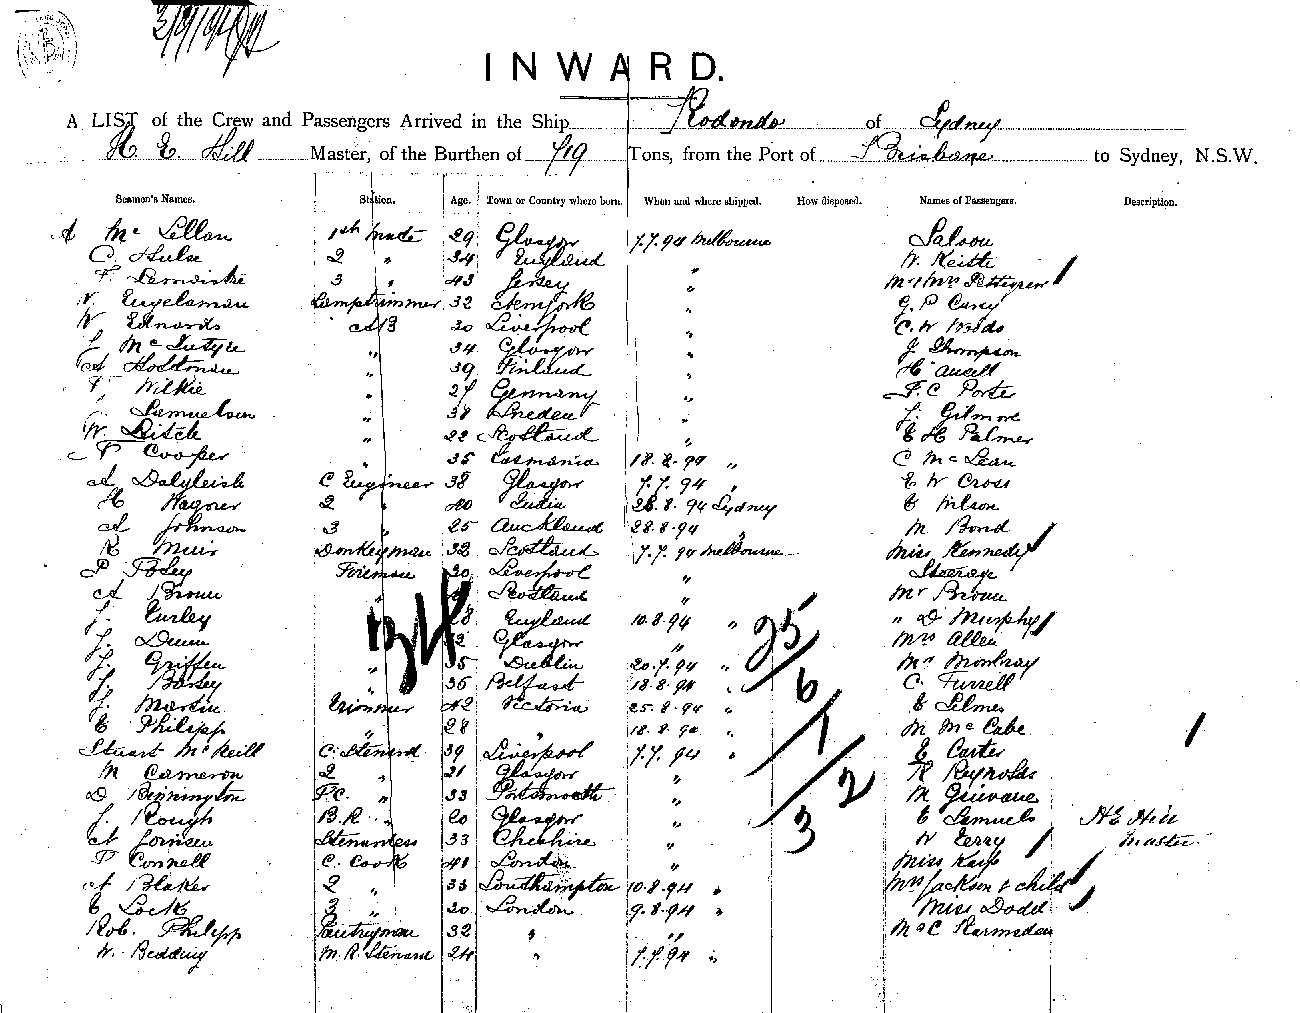 3/9/94
INWARD.
A LIST of the Crew and Passengers Arrived in the Ship Rodondo of Sydney
H. E. Hill Master, of the Burthen of 719 Tons, from the Port of Brisbane to Sydney, N.S.W.
Seamen's Names. Station. Age. Town or Country where born. When and where shipped. How disposed. Names of Passengers. Description.
A McLellan 1st Mate 29 Glasgow 7.7.94 Melbourne Saloon
C. Hulse 2 " 34 England " W. Keiste
F 3 " 43 Jersey " Mr & Mrs Pettigrew
V. Engelsman Lamptrimmer 32 Newyork " G. P. Carey
W Edwards AB 30 Liverpool " C. W Woods
J McIntyre " 34 Glasgow " J Thompson
A Holtman " 39 Finland " H Ancell
F. Wilkie " 27 Germany " F. C Porter
Samuelson " 38 Sweden " J. Gilmore
W. Leitch " 22 Scotland " E H Palmer
P Cooper " 35 Tasmania 18.8.94 " C McLean
A Dalgleish C Engineer 38 Glasgow 7.7.94 " E W Cross
H Wagner 2 " 40 India 28.8.94 Sydney E Wilson
A Johnson 3 " 25 Auckland 28.8.94 " M Bond
R Muir Donkeyman 32 Scotland 7.7.94 Melbourne Miss Kennedy
P Foley Fireman 30 Liverpool " Steerage
A Brown " Scotland " Mr Brown
J. Turley 28 England 10.8.94 " " D Murphy
J. Dunn 32 Glasgow " Mrs Allen
J. Griffen " 35 Dublin 20.7.94 " Mc
J. Bailey " 36 Belfast 18.8.94 " C. Turrell
J. Martin Trimmer 42 Victoria 25.8.94 " E Selmes
E Philipp " 28 " 18.8.94 " M McCabe
Stuart McNeill C. Steward 39 Liverpool 7.7.94 " E Carter
M Cameron 2 " 21 Glasgow " R Reynolds
D Bennington F.C. " 33 Portsmouth " M Grievane
J. Rough B.R. " 20 Glasgow " E Samuels H E Hill
A Stewardess 33 Cheshire " W Terry Master
P Connell C. Cook 41 London " Miss Karp
A Blaker 2 " 33 Southampton 10.8.94 " Mrs Jackson & child
E Lock 3 " 20 London 9.8.94 " Miss Dodd
Rob. Philipp Pantryman 32 " " Mr C Ramsden
W. Bedding M.R. Steward 24 " 7.7.94 "
34
25
6
1
2
3